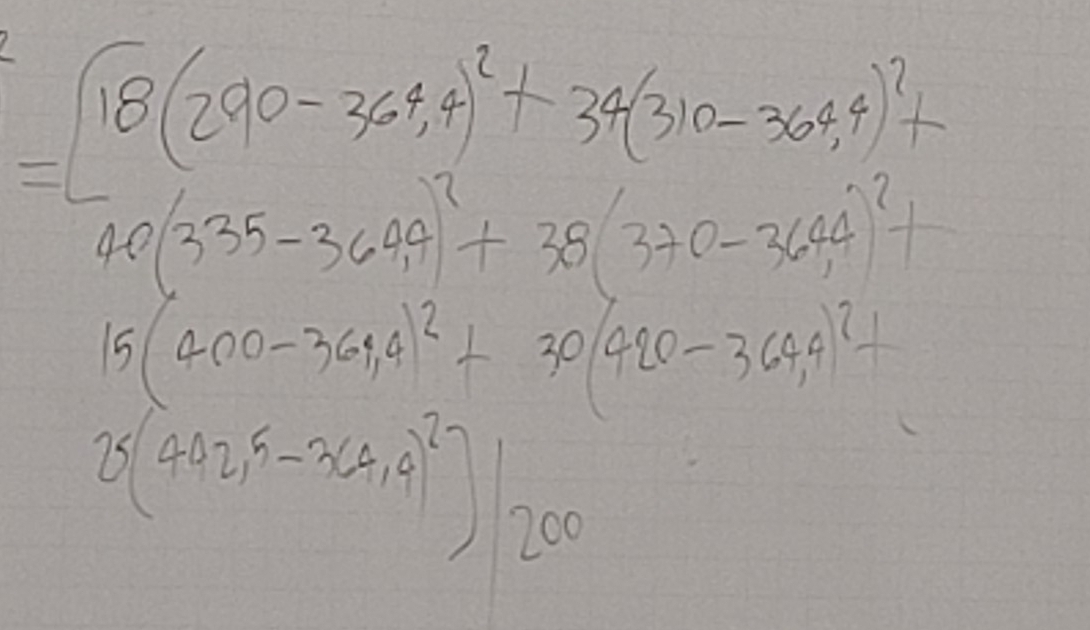 2
= [18(290-364,4)² + 34(310-364,4)² +
40(335-364,4)² + 38(370-364,4)² +
15(400-364,4)² + 30(420-364,4)² +
25(442,5-364,4)²] | 200